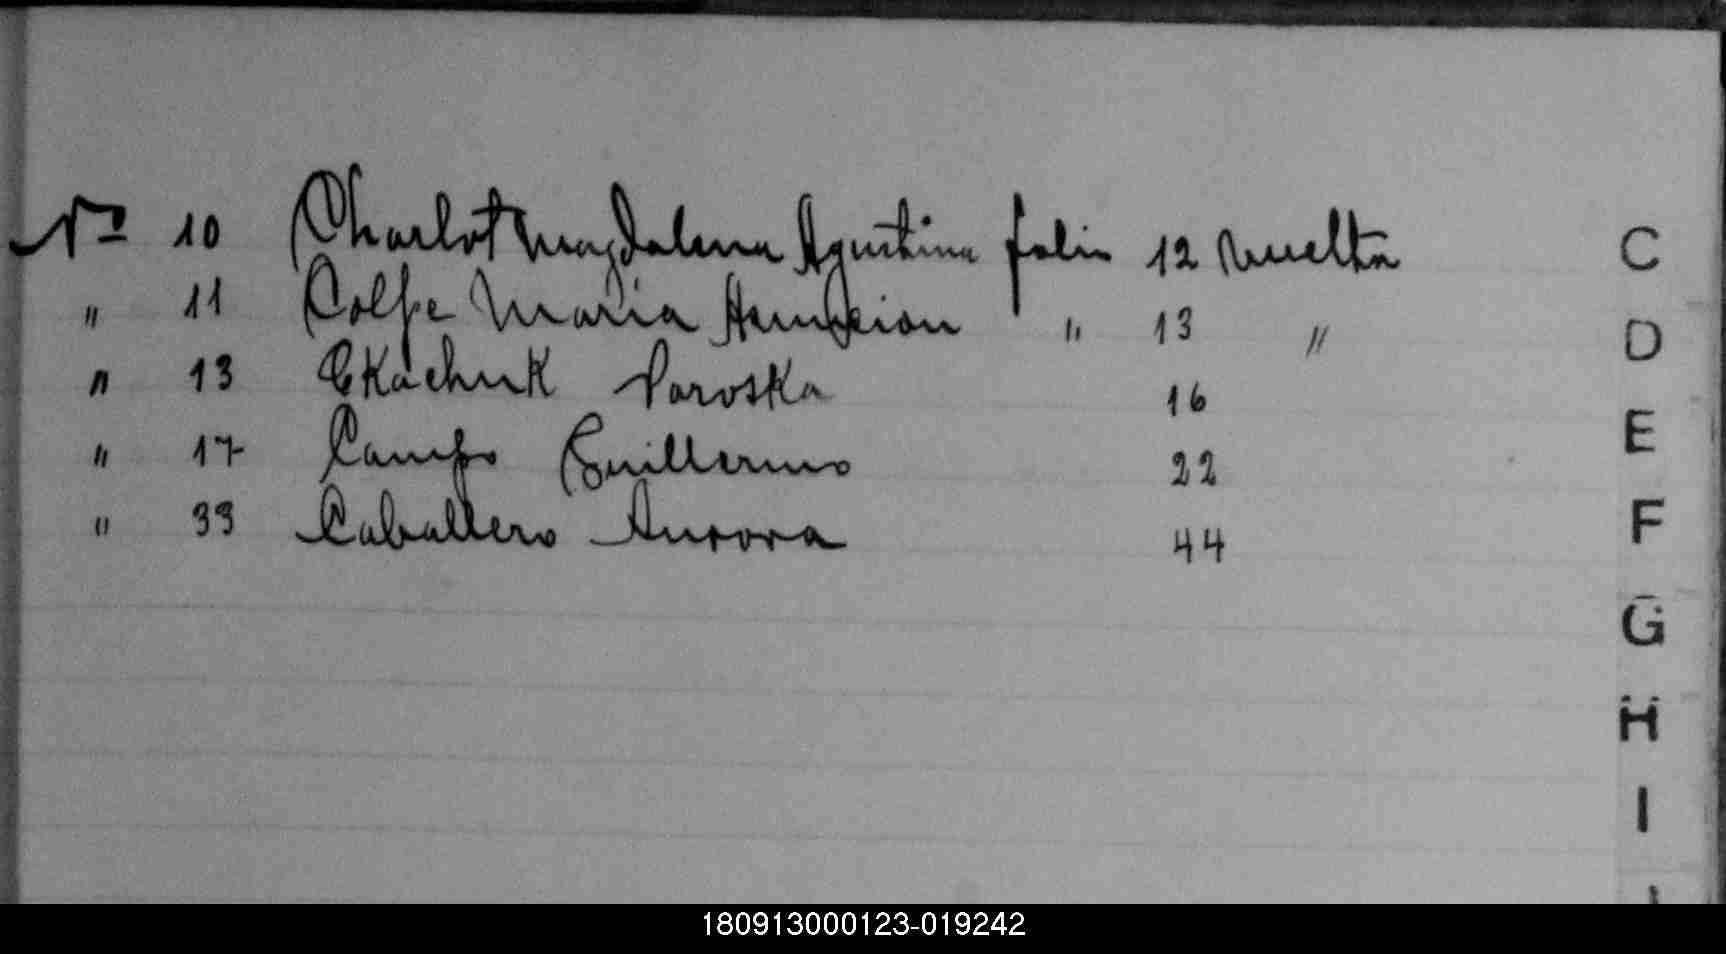 Nº 10 Charlot Magdalena Agustina folio 12 vuelta
" 11 Colpe Maria Asuncion " 13 "
" 13 Ckachuk Paroska 16
" 17 Campo Guillermo 22
" 33 Caballero Aurora 44
C
D
E
F
G
H
I
180913000123-019242